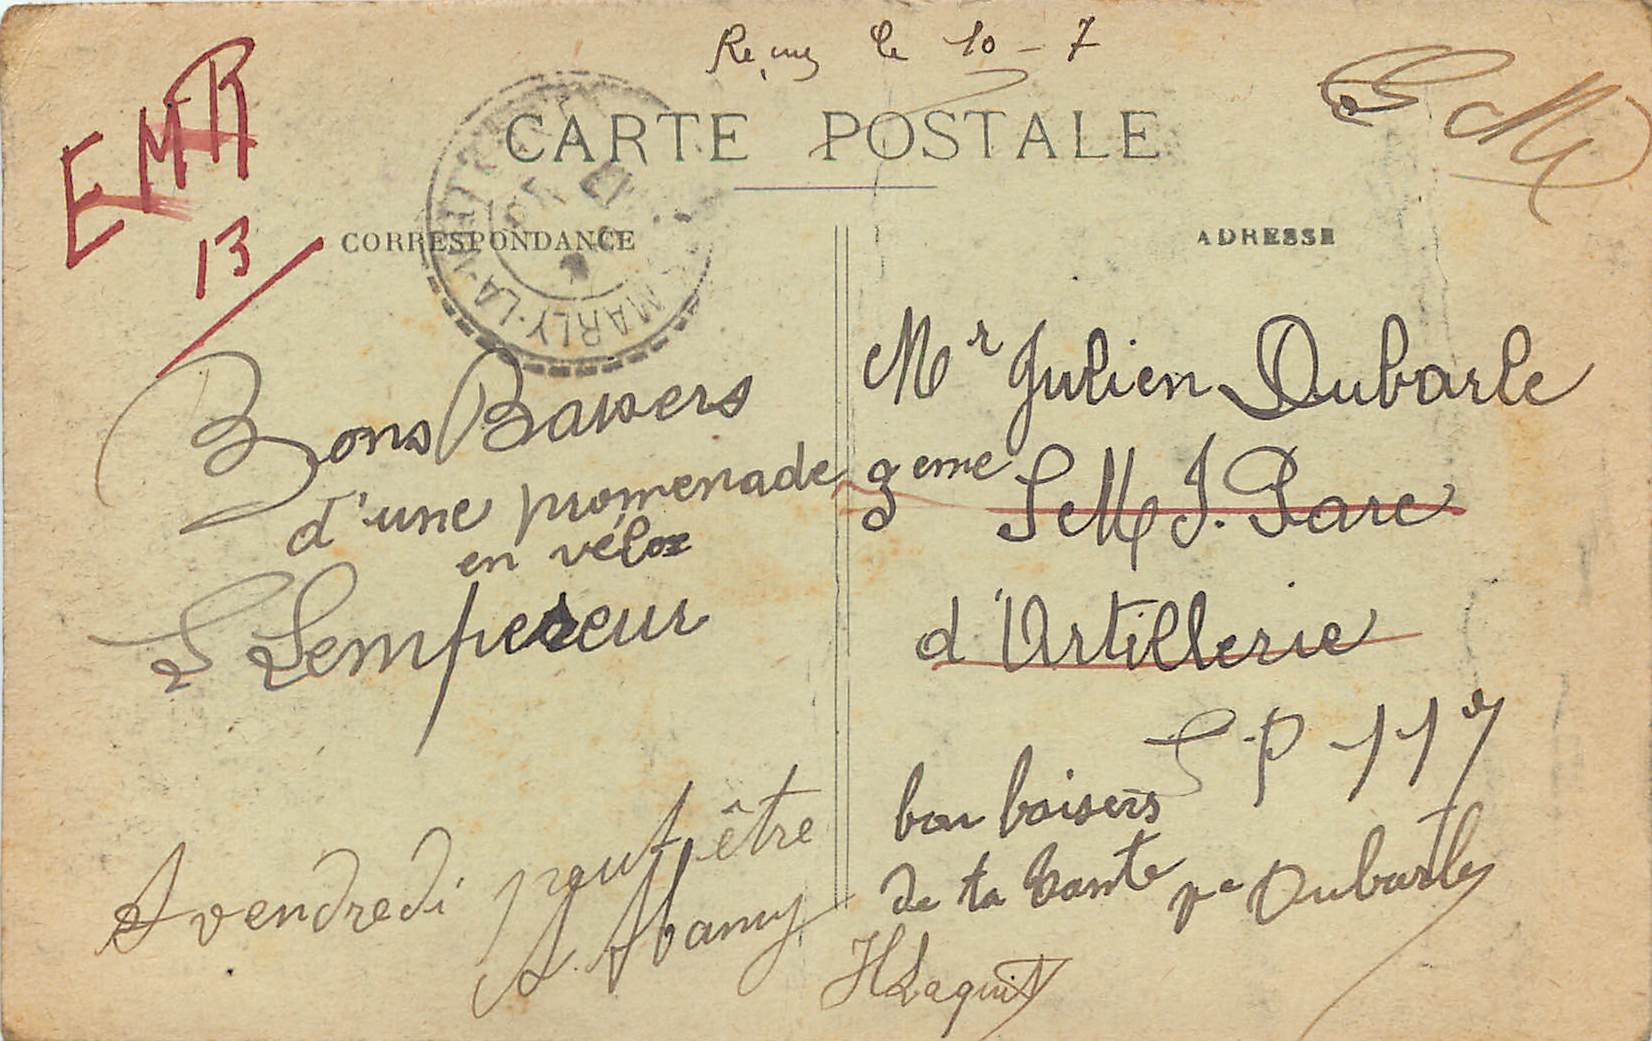 Reçue le 10 - 7
EMR
13
F M
CARTE POSTALE
CORRESPONDANCE
MARLY-LA-VILLE
ADRESSE
Bons Baisers
d'une promenade
en vélo
L Lempereur
A vendredi peut être
Mr Julien Dubarle
9eme S M I. Parc
d'Artillerie
S P 117
bon baisers
de ta tante
Dubarle